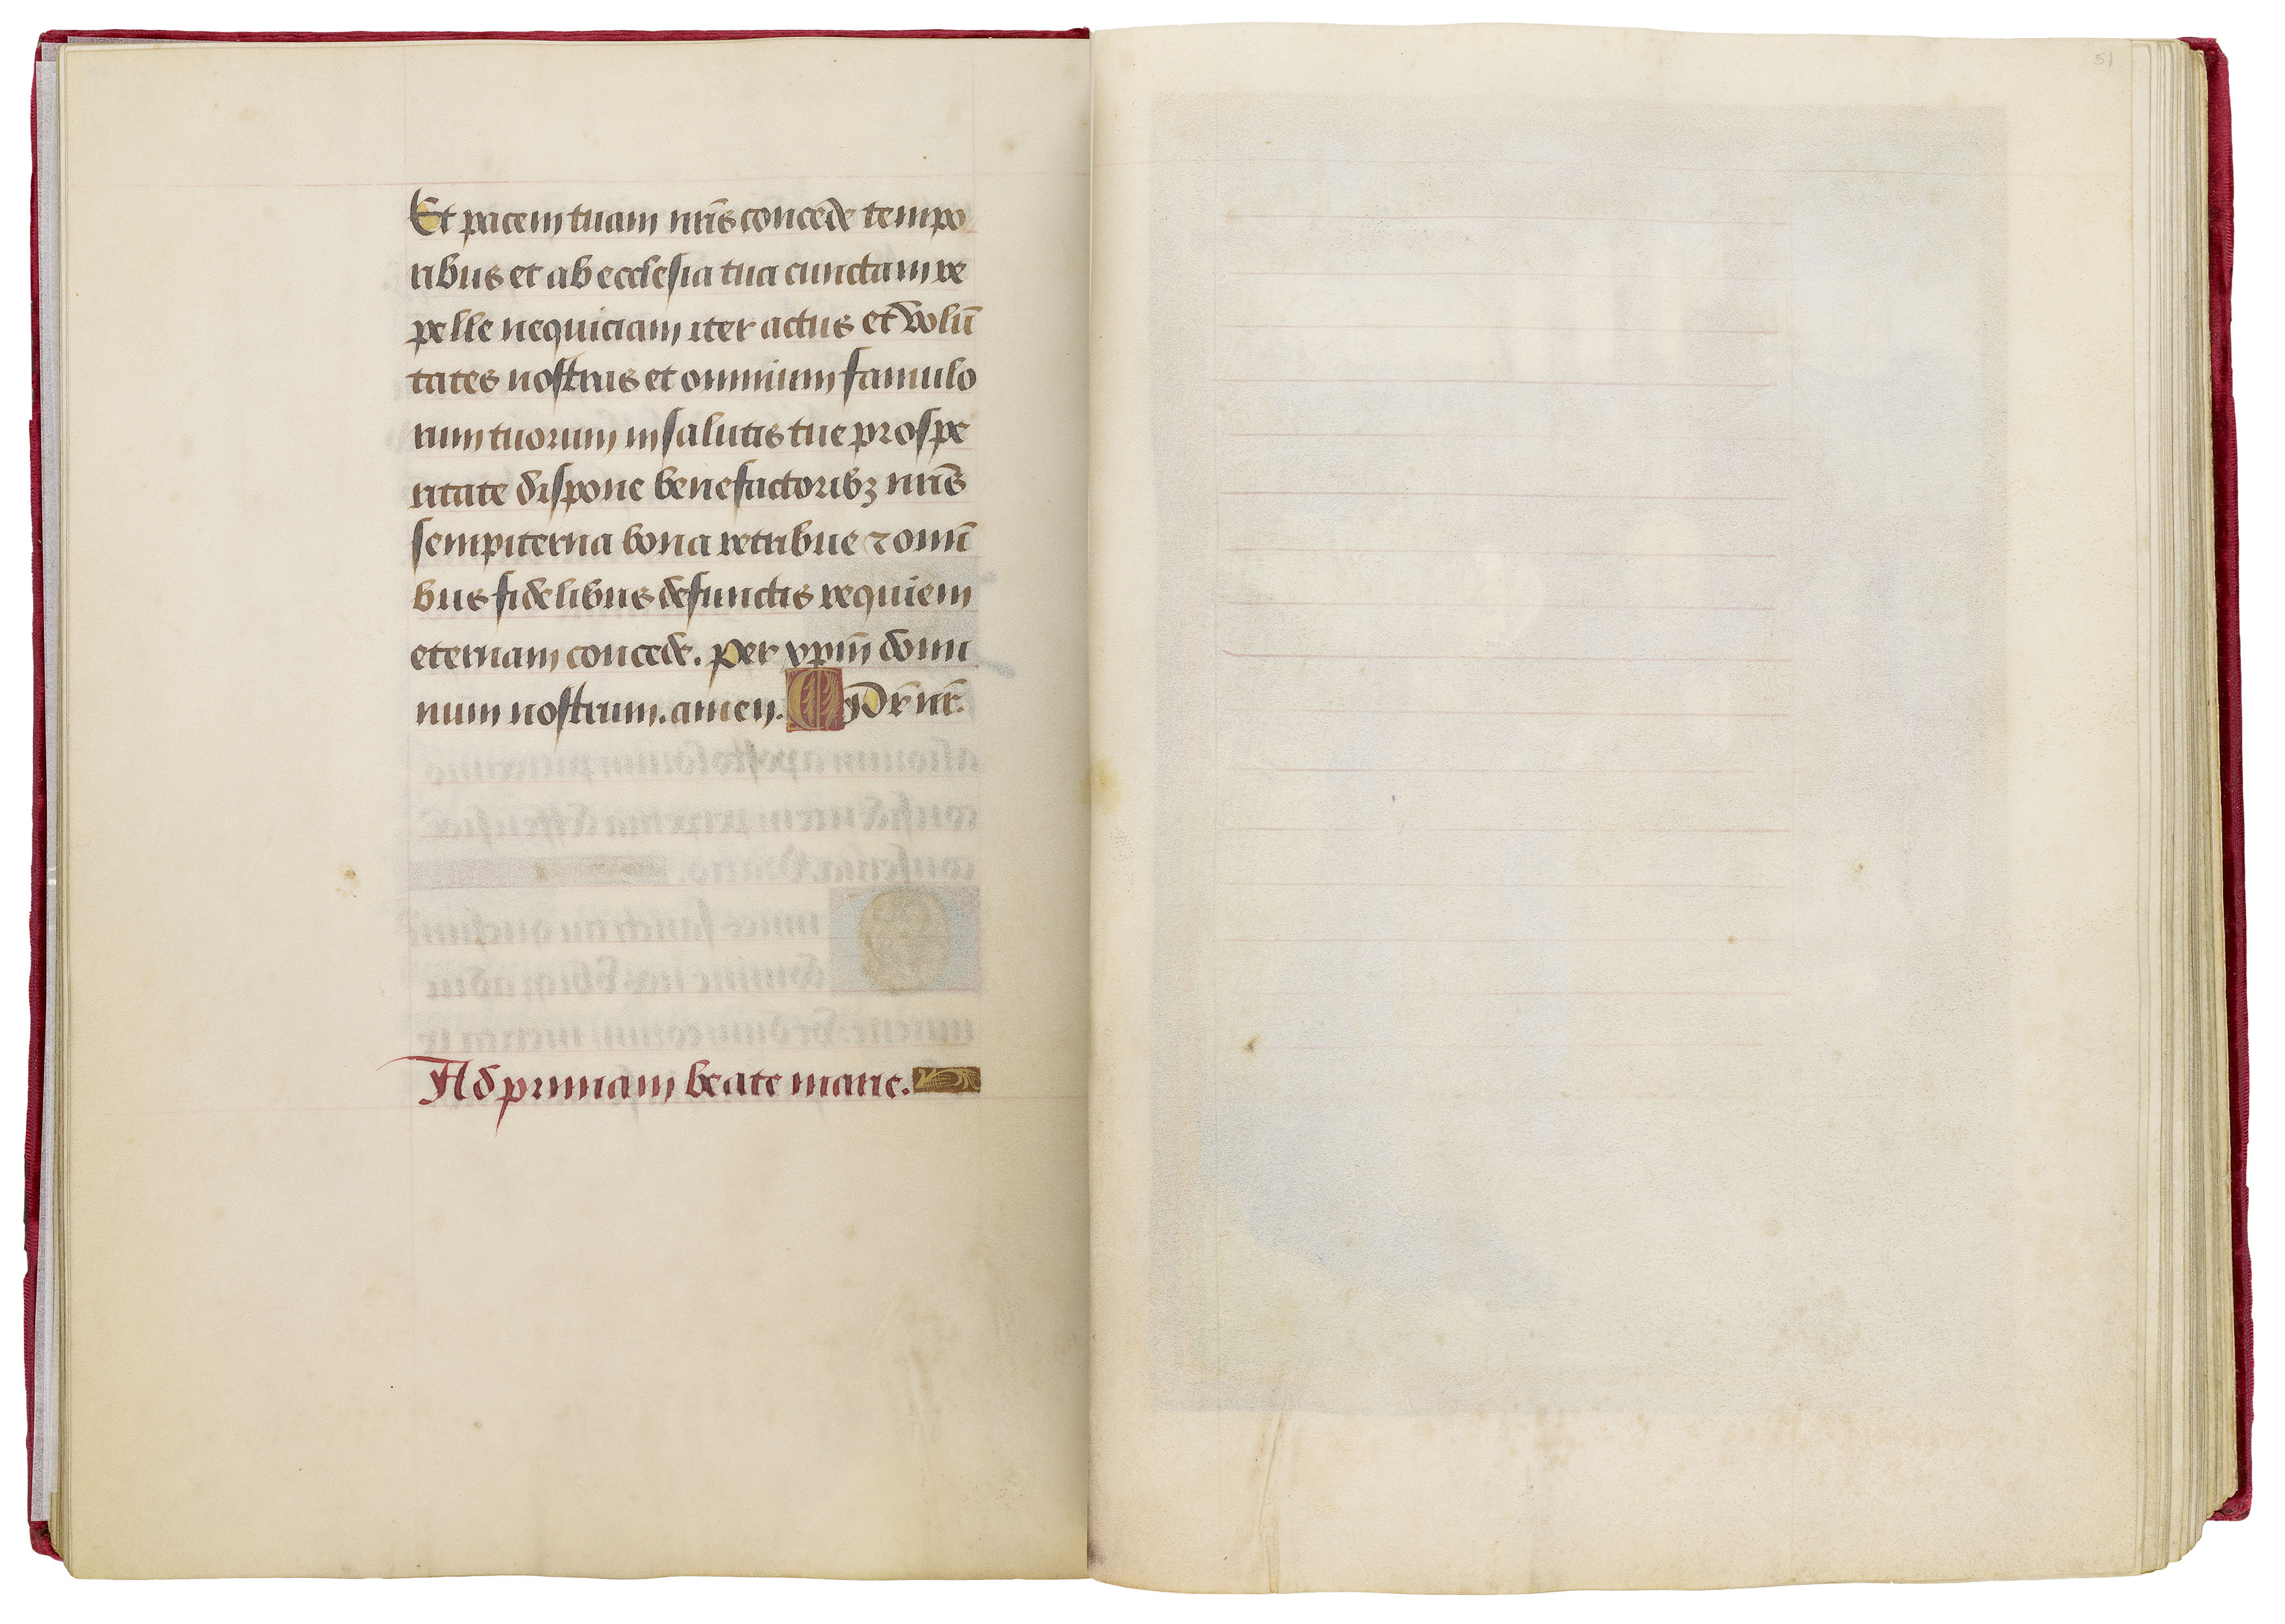 Et pacem tuam nr̄is concede tempo
ribus et ab ecclesia tua cunctam re
pelle nequiciam iter actus et volū
tates nostras et omnium famulo
rum tuorum in salutis tue prospe
ritate dispone benefactoribꝫ nr̄is
sempiterna bona retribue ⁊ omī
bus fidelibus defunctis requiem
eternam concede. Per xp̄m domi
num nostrum. amen.
Ad primam beate marie.
51